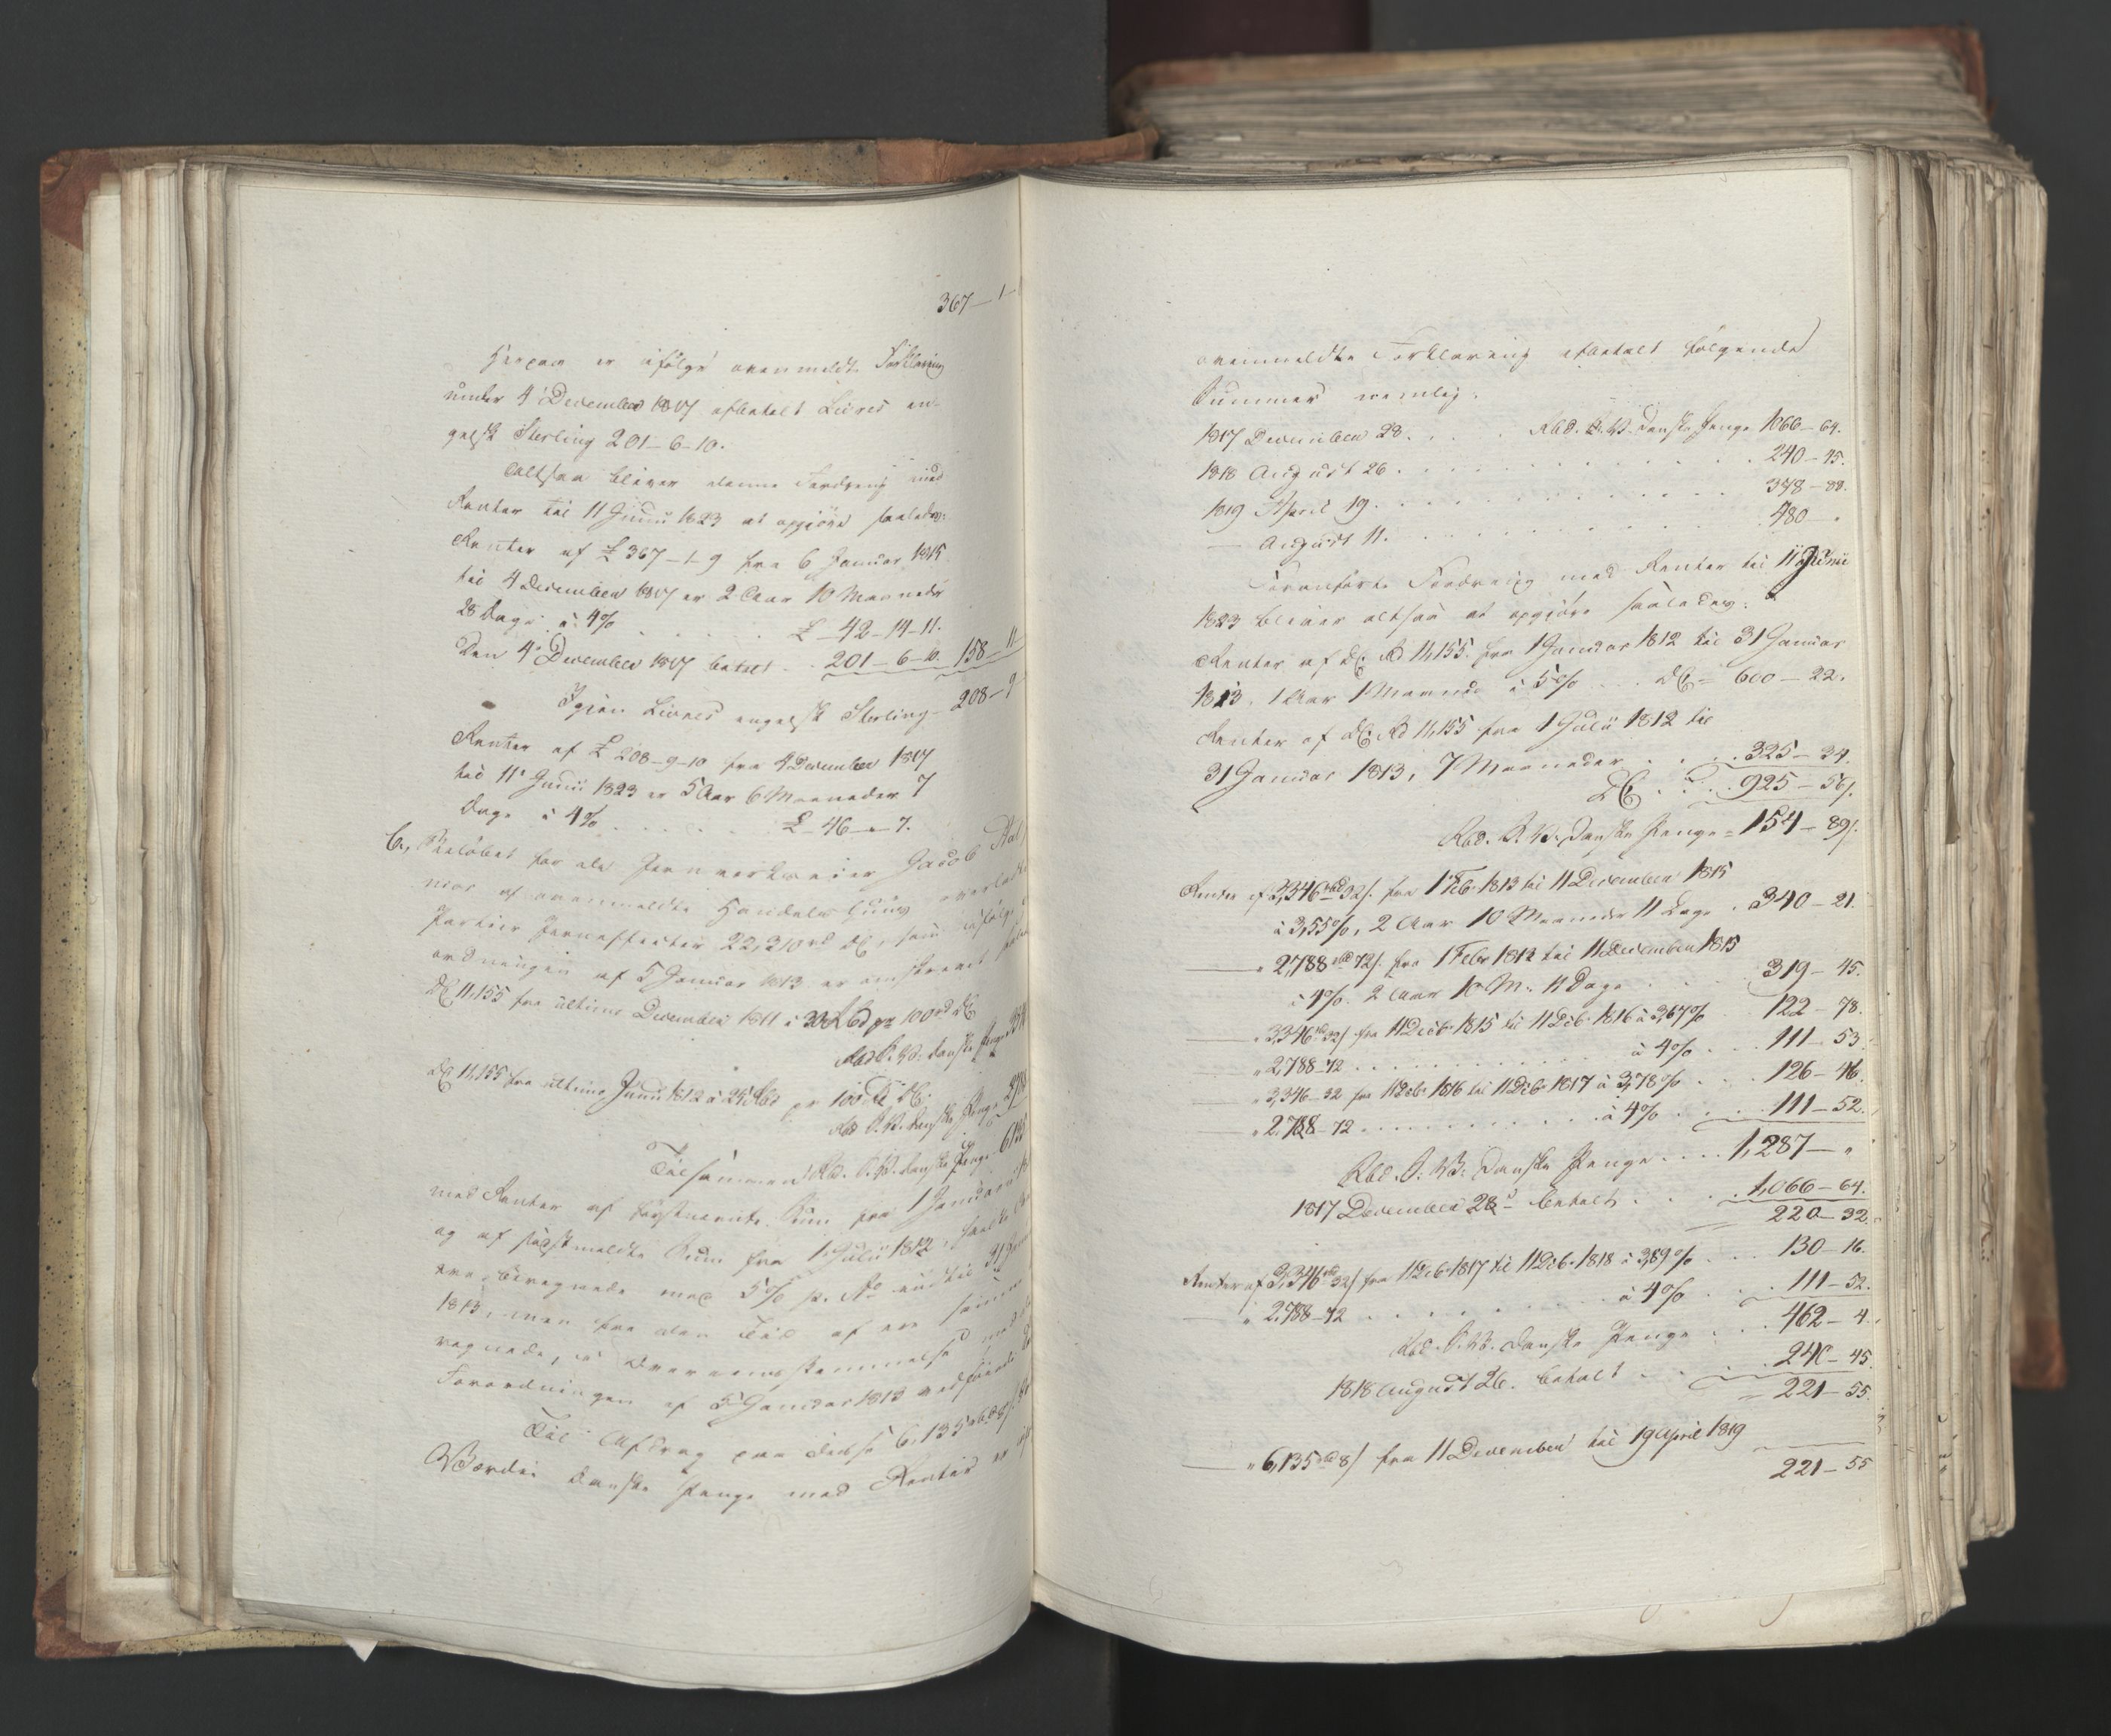 367 — 1 —
Herpaa er ifölge ovenmeldte Forklaring
under 4 December 1817 afbetalt Livres en-
gelsk Sterling 201-6-10.
Altsaa bliver denne Fordring med
Renter til 11 Junii 1823 at opgjöre saaledes:
Renter af £ 367-1-9 fra 6 Januar 1815
til 4 December 1817 er 2 Aar 10 Maaneder
28 Dage à 4% . . . . . £ 42-14-11.
Den 4 December 1817 betalt . . 201-6-10. 158-11
Igjen Livres engelsk Sterling 208-9
Renter af £ 208-9-10 fra 4 December 1817
til 11 Junii 1823 er 5 Aar 6 Maaneder 7
Dage à 4% . . . . . £ 46 - " - 7.
Belöbet for de Jernverkseier Jacob Aal
af ovenmeldte Handelshuus
Partier Jerneffecter 22,310 rd DC, som ifölge
ordningen af 5 Januar 1813 er omskrevet
DC 11,155 fra ultimo December 1811 à Rbd pr 100 rd DC
Rbd S.V. danske Penge
DC 11,155 fra ultimo Junii 1812 à 25 Rbd pr 100 rd DC.
Rbd S.V. danske Penge
Tilsammen Rbd. S.V. danske Penge 6135
med Renter af förstnævnte Sum fra 1 Januar
og af sidstmeldte Sum fra 1 Julii 1812,
beregnede med 5% p. Ao indtil 31
1813, men fra den Tid af er samme
regnede, i Overeensstemmelse med
Forordningen af 5 Januar 1813
Til Afdrag paa disse 6,135 rbd 8 s.
Værdie danske Penge med Renter er
ovenmeldte Forklaring afbetalt fölgende
Summer nemlig:
1817 December 28. . . . Rbd. S.V. danske Penge 1066-64.
1818 August 26 . . . . . 240-45.
1819 April 19. . . . . . 378-88.
— August 11. . . . . . 480 - "
Foranförte Fordring med Renter til 11 Junii
1823 bliver altsaa at opgjöre saaledes:
Renter af DC. Rd 11,155. fra 1 Januar 1812 til 31 Januar
1813, 1 Aar 1 Maaned à 5% . . . DC = 600-22.
Renter af DC. Rd 11,155 fra 1 Julii 1812 til
31 Januar 1813, 7 Maaneder . . . . 325-34.
DC . . . 925-56 s.
Rbd. S.V. danske Penge = 154-89 s.
Renter af 3,346 rbd 32 s. fra 1 Feb. 1813 til 11 December 1815
à 3,55%, 2 Aar 10 Maaneder 11 Dage . 340-21.
— " 2,788 rbd 72 s. fra 1 Febr 1813 til 11 December 1815
à 4%. 2 Aar 10 M. 11 Dage . . . 319-45.
— " 3,346 rbd 32 s fra 11 Decb. 1815 til 11 Decb. 1816 à 3,67% 122-78.
— " 2,788-72 . . . . . . . . à 4% . . . 111-53.
— " 3,346-32 fra 11 Decb. 1816 til 11 Decb. 1817 à 3,78% . . . 126-46.
— " 2,788-72 . . . . . . . . à 4% . . . . 111-52.
Rbd. S.V. danske Penge . . . . 1,287 - "
1817 December 28 betalt . . . . 1,066-64.
220-32.
Renter af 3,346 rbd 32 s fra 11 Decb. 1817 til 11 Decb. 1818 à 3,89% . . . 130-16.
— " 2,788-72 . . . . . . . . à 4% . . . . 111-52.
Rbd. S.V. danske Penge . . . 462-4.
1818 August 26. betalt . . . . 240-45.
221-55.
— " 6,135 rbd 8 s fra 11 December til 19 April 1819
221-55